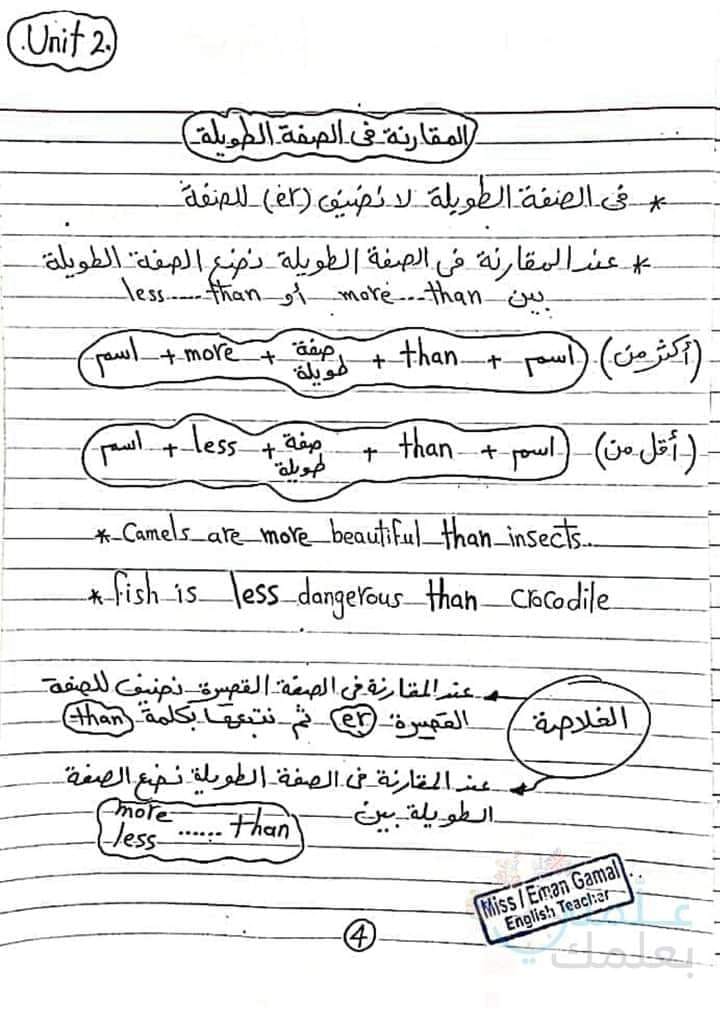 .Unit 2.
المقارنة فى الصفة الطويلة
* فى الصفة الطويلة لا نضيف (er) للصفة
* عند المقارنة فى الصفة الطويلة نضع الصفة الطويلة
بين more...than أو less.....than
(أكثر من) اسم + more + صفة طويلة + than + اسم
(أقل من) اسم + less + صفة طويلة + than + اسم
* Camels are more beautiful than insects..
* fish is less dangerous than crocodile
الخلاصة
عند المقارنة فى الصفة القصيرة نضيف للصفة
القصيرة er ثم نتبعها بكلمة than
عند المقارنة فى الصفة الطويلة نضع الصفة
الطويلة بين
more
less ...... than
Miss / Eman Gamal
English Teacher
علمني
بعلمك
4